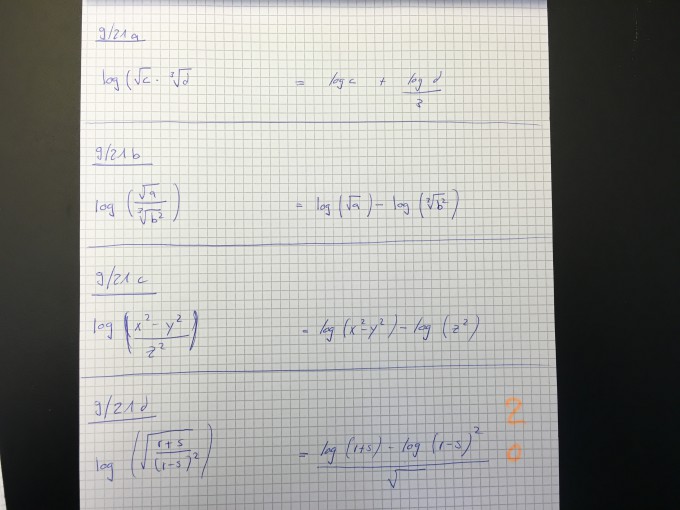 9/21a
log (√c · ³√d = log c + log d / 3
9/21b
log (√a / ³√b²) = log (√a) - log (³√b²)
9/21c
log (x² - y² / z²) = log (x² - y²) - log (z²)
9/21d
log (√(r+s / (r-s)²)) = log (r+s) - log (r-s)² / √
2
0